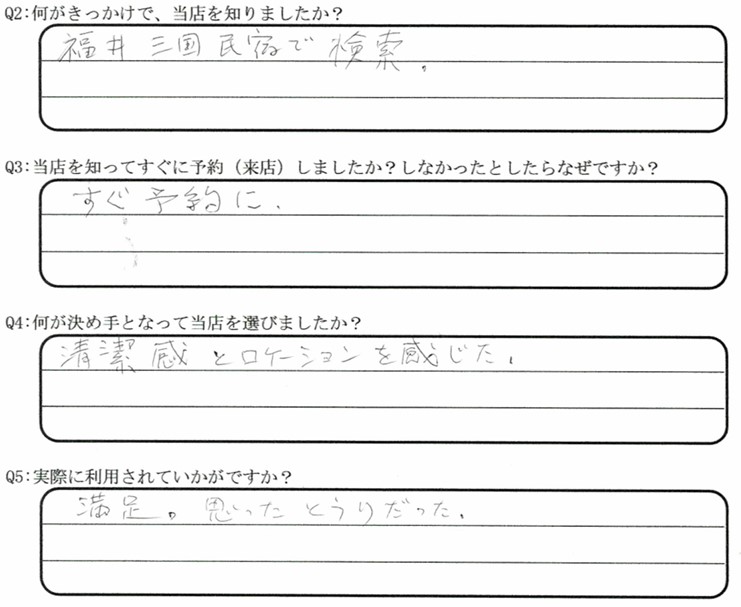 Q2:何がきっかけで、当店を知りましたか？
福井 三国 民宿で 検索。
Q3:当店を知ってすぐに予約（来店）しましたか？しなかったとしたらなぜですか？
すぐ 予約に、
Q4:何が決め手となって当店を選びましたか？
清潔感とロケーションを感じた、
Q5:実際に利用されていかがですか？
満足。思ったとうりだった、